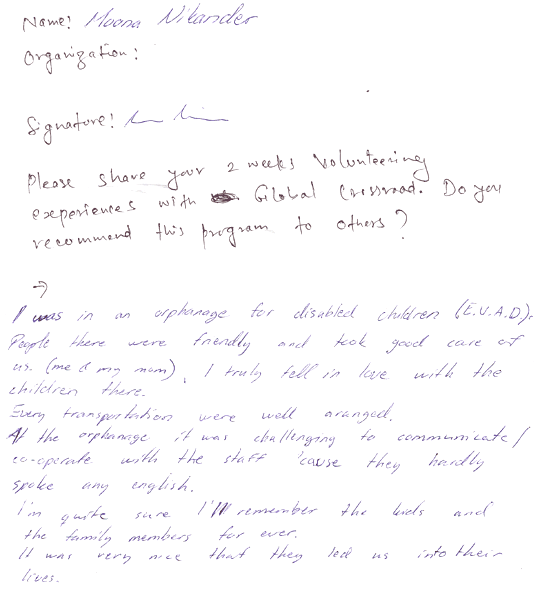 Name: Moona Nikander
Organization:
Signature:
Please share your 2 weeks volunteering
experiences with Global Crossroad. Do you
recommend this program to others?
→
I was in an orphanage for disabled children (E.V.A.D).
People there were friendly and took good care of
us (me & my mum). I truly fell in love with the
children there.
Every transportation were well aranged.
At the orphanage it was challenging to communicate/
co-operate with the staff 'cause they hardly
spoke any english.
I'm quite sure I'll remember the kids and
the family members for ever.
It was very nice that they led us into their
lives.